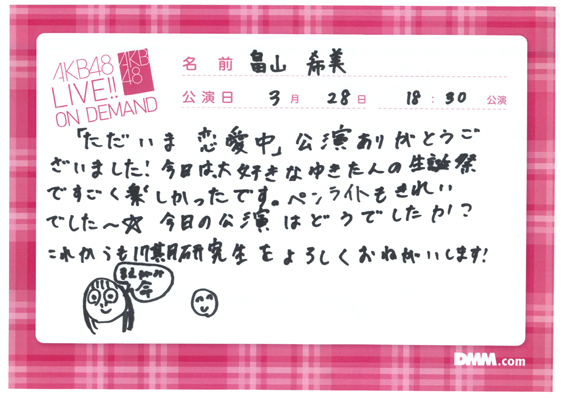 AKB48
LIVE!!
ON DEMAND
AKB
48
名前 畠山 希美
公演日 3月 28日 18:30 公演
「ただいま 恋愛中」公演ありがとうご
ざいました！今日は大好きなゆきたんの生誕祭
ですごく楽しかったです。ペンライトもきれい
でした〜☆ 今日の公演はどうでしたか？
これからも17期研究生をよろしくおねがいします！
DMM.com